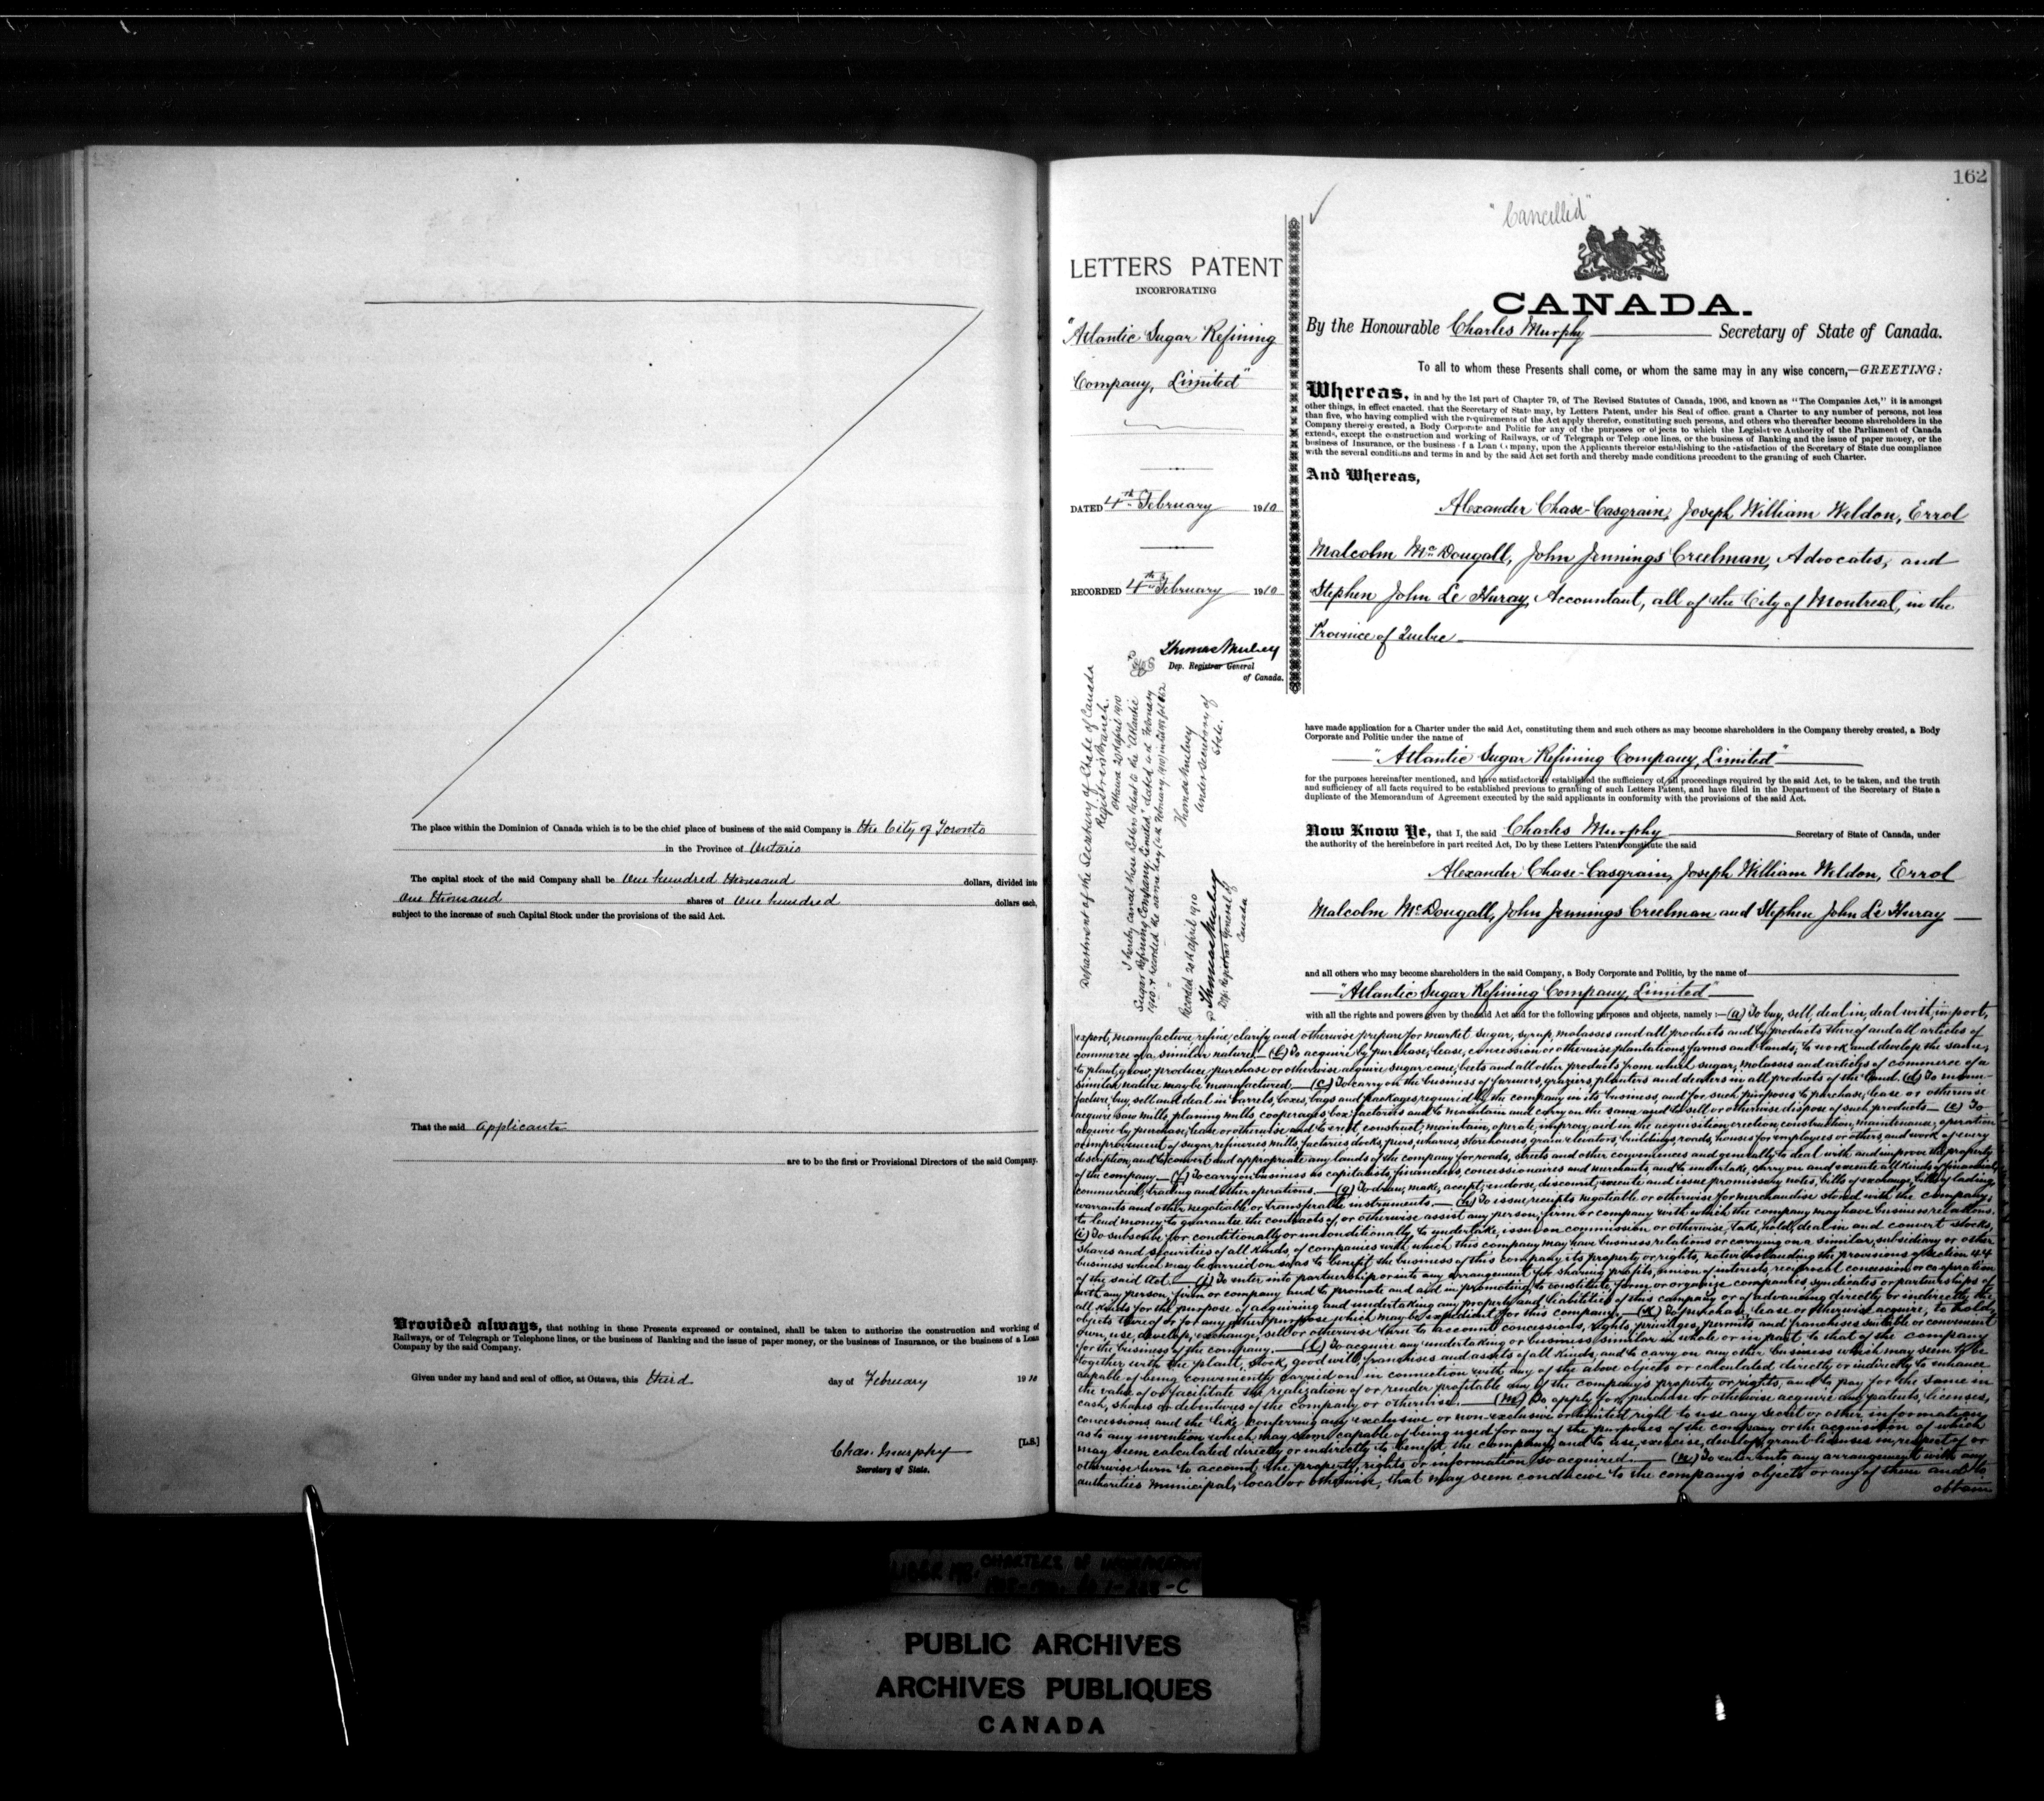 The place within the Dominion of Canada which is to be the chief place of business of the said Company is the City of Toronto
in the Province of Ontario
The capital stock of the said Company shall be One hundred thousand dollars, divided into
One thousand shares of One hundred dollars each,
subject to the increase of such Capital Stock under the provisions of the said Act.
That the said applicants
are to be the first or Provisional Directors of the said Company.
Provided always, that nothing in these Presents expressed or contained, shall be taken to authorize the construction and working of
Railways, or of Telegraph or Telephone lines, or the business of Banking and the issue of paper money, or the business of Insurance, or the business of a Loan
Company by the said Company.
Given under my hand and seal of office, at Ottawa, this third day of February 1910
Chas. Murphy [L.S.]
Secretary of State.
162
"Cancelled"
LETTERS PATENT
INCORPORATING
"Atlantic Sugar Refining
Company, Limited"
DATED 4th February 1910
RECORDED 4th February 1910
Thomas Mulvey
Dep. Registrar General
of Canada.
Department of the Secretary of State of Canada
Registrar's Branch.
Ottawa 20th April 1910
I hereby cancel these Letters Patent to the "Atlantic
Sugar Refining Company, Limited," dated 4th February
1910 & recorded the same day (4th February 1910) in Liber 172 fol 162
Thomas Mulvey
Under Secretary of
State.
Recorded 20th April 1910
Thomas Mulvey
Dep. Registrar General of
Canada
CANADA.
By the Honourable Charles Murphy Secretary of State of Canada.
To all to whom these Presents shall come, or whom the same may in any wise concern,—GREETING:
Whereas, in and by the 1st part of Chapter 79, of The Revised Statutes of Canada, 1906, and known as "The Companies Act," it is amongst
other things, in effect enacted, that the Secretary of State may, by Letters Patent, under his Seal of office, grant a Charter to any number of persons, not less
than five, who having complied with the requirements of the Act apply therefor, constituting such persons, and others who thereafter become shareholders in the
Company thereby created, a Body Corporate and Politic for any of the purposes or objects to which the Legislative Authority of the Parliament of Canada
extends, except the construction and working of Railways, or of Telegraph or Telephone lines, or the business of Banking and the issue of paper money, or the
business of Insurance, or the business of a Loan Company, upon the Applicants therefor establishing to the satisfaction of the Secretary of State due compliance
with the several conditions and terms in and by the said Act set forth and thereby made conditions precedent to the granting of such Charter.
And Whereas,
Alexander Chase-Casgrain, Joseph William Weldon, Errol
Malcolm McDougall, John Jennings Creelman, Advocates, and
Stephen John Le Huray, Accountant, all of the City of Montreal, in the
Province of Quebec
have made application for a Charter under the said Act, constituting them and such others as may become shareholders in the Company thereby created, a Body
Corporate and Politic under the name of
"Atlantic Sugar Refining Company, Limited"
for the purposes hereinafter mentioned, and have satisfactorily established the sufficiency of all proceedings required by the said Act, to be taken, and the truth
and sufficiency of all facts required to be established previous to granting of such Letters Patent, and have filed in the Department of the Secretary of State a
duplicate of the Memorandum of Agreement executed by the said applicants in conformity with the provisions of the said Act.
Now Know Ye, that I, the said Charles Murphy Secretary of State of Canada, under
the authority of the hereinbefore in part recited Act, Do by these Letters Patent constitute the said
Alexander Chase-Casgrain, Joseph William Weldon, Errol
Malcolm McDougall, John Jennings Creelman and Stephen John Le Huray
and all others who may become shareholders in the said Company, a Body Corporate and Politic, by the name of
"Atlantic Sugar Refining Company, Limited"
with all the rights and powers given by the said Act and for the following purposes and objects, namely:— (a) To buy, sell, deal in, deal with, import,
export, manufacture, refine, clarify and otherwise prepare for market sugar, syrup, molasses and all products and by products thereof and all articles of
commerce of a similar nature.— (b) To acquire by purchase, lease, concession or otherwise plantations, farms and lands, to work and develop the same;
to plant, grow, produce, purchase or otherwise acquire sugar cane, beets and all other products from which sugar, molasses and articles of commerce of a
similar nature may be manufactured.— (c) To carry on the business of farmers, graziers, planters and dealers in all products of the land. (d) To manu-
facture, buy, sell and deal in barrels, boxes, bags and packages required by the company in its business, and for such purposes to purchase, lease or otherwise
acquire saw mills, planing mills, cooperages, box factories and to maintain and carry on the same and to sell or otherwise dispose of such products— (e) To
acquire by purchase, lease or otherwise and to erect, construct, maintain, operate, improve, aid in the acquisition, erection, construction, maintenance, operation
or improvement of sugar refineries, mills, factories, docks, piers, wharves, storehouses, grain elevators, buildings, roads, houses for employees or others, and work of every
description, and to convert and appropriate any lands of the company for roads, streets and other conveniences and generally to deal with and improve the property
of the company.— (f) To carry on business as capitalists, financiers, concessionaires and merchants, and to undertake, carry on and execute all kinds of financial,
commercial, trading and other operations.— (g) To draw, make, accept, endorse, discount, execute and issue promissory notes, bills of exchange, bills of lading,
warrants and other negotiable or transferable instruments.— (h) To issue receipts negotiable or otherwise for merchandise stored with the company;
to lend money, to guarantee the contracts of, or otherwise assist any person, firm or company with which the company may have business relations.
(i) To subscribe for conditionally or unconditionally, to undertake, issue on commission or otherwise, take, hold, deal in and convert stocks,
shares and securities of all kinds, of companies with which this company may have business relations or carrying on a similar, subsidiary or other
business which may be carried on so as to benefit the business of this company its property or rights, notwithstanding the provisions of section 44
of the said Act.— (j) To enter into partnership or into any arrangement for sharing profits, union of interests, reciprocal concession or cooperation
with any person, firm or company and to promote and aid in promoting, to constitute, form or organize companies, syndicates or partnerships of
all kinds for the purpose of acquiring and undertaking any property and liabilities of this company or of advancing directly or indirectly the
objects thereof or for any other purpose which may be expedient for this company.— (k) To purchase, lease or otherwise acquire, to hold,
own, use, develop, exchange, sell or otherwise turn to account concessions, rights, privileges, permits and franchises suitable or convenient
for the business of the company.— (l) To acquire any undertaking or business similar in whole or in part to that of the company
together with the plant, stock, good will, franchises and assets of all kinds, and to carry on any other business which may seem to be
capable of being conveniently carried on in connection with any of the above objects or calculated directly or indirectly to enhance
the value of or facilitate the realization of or render profitable any of the company's property or rights, and to pay for the same in
cash, shares or debentures of the company or otherwise.— (m) To apply for, purchase or otherwise acquire any patents, licenses,
concessions and the like, conferring any exclusive or non-exclusive or limited right to use any secret or other information
as to any invention which may seem capable of being used for any of the purposes of the company or the acquisition of which
may seem calculated directly or indirectly to benefit the company, and to use, exercise, develop, grant licenses in respect of or
otherwise turn to account the property, rights or information so acquired.— (n) To enter into any arrangement with any
authorities municipal, local or otherwise, that may seem conducive to the company's objects or any of them and to
obtain
CHARTERS OF INCORPORATION
PUBLIC ARCHIVES
ARCHIVES PUBLIQUES
CANADA